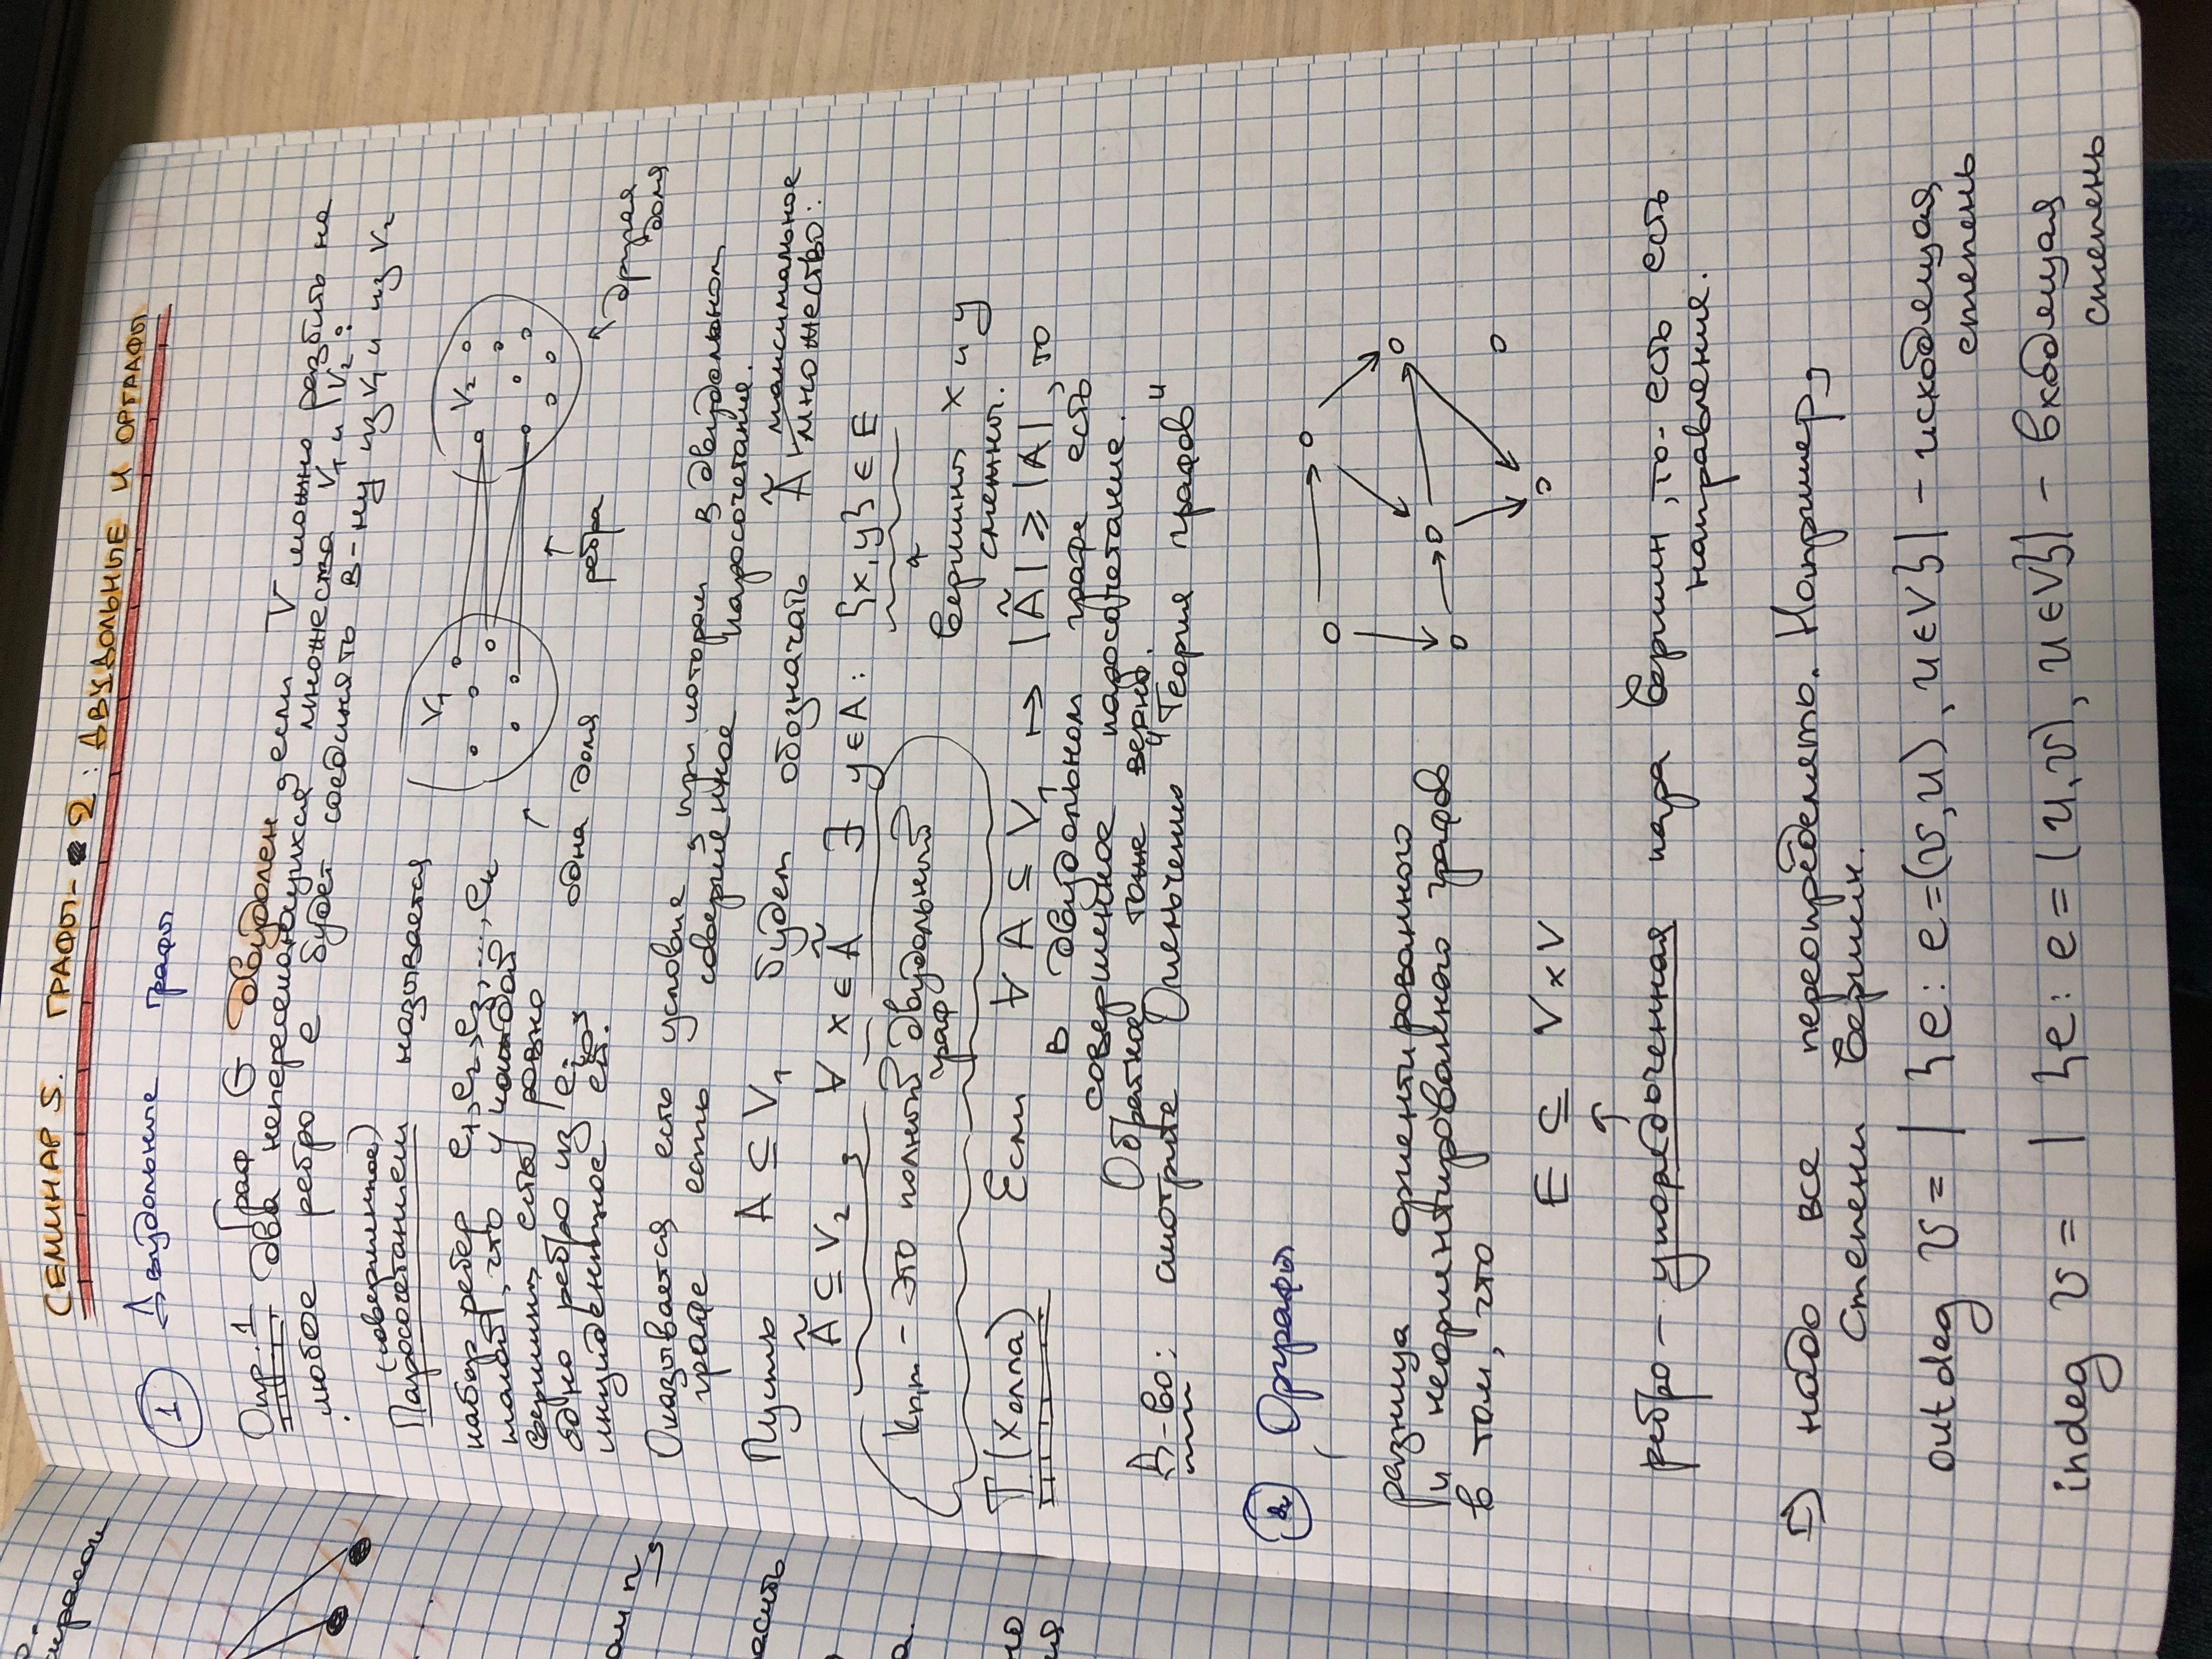 СЕМИНАР 5. ГРАФЫ-2: ДВУДОЛЬНЫЕ И ОРГРАФЫ
1 Двудольные графы
Опр. 1 Граф G двудолен, если V можно разбить на
два непересекающихся множества V₁ и V₂:
любое ребро e будет соединять в-ну из V₁ и из V₂
(совершенное)
Паросочетанием называется
набор ребер e₁, e₂, e₃, ..., eₖ
такой, что у каждой
вершины есть ровно
одно ребро из eᵢ,
инцидентное ей.
V₁
V₂
одна доля
ребра
другая
доля
Оказывается есть условие, при котором в двудольном
графе есть совершенное паросочетание.
Пусть A ⊆ V₁ будет обозначать Ã максимальное
множество:
Ã ⊆ V₂, ∀ x ∈ Ã ∃ y ∈ A: {x, y} ∈ E
Kn,m - это полный двудольный
граф
вершины x и y
смежны.
Т. (Холла) Если ∀ A ⊆ V₁ ↦ |Ã| ⩾ |A|, то
в двудольном графе есть
совершенное паросочетание.
Обратное тоже верно.
Д-во: смотрите Омельченко "Теория графов"
2 Орграфы
разница ориентированного
и неориентированного графов
в том, что
E ⊆ V × V
↑
ребро - упорядоченная пара вершин, то-есть есть
направление.
надо все переопределять. Например,
степени вершин.
outdeg v = | {e: e = (v, u), u ∈ V} | - исходящая
степень
indeg v = | {e: e = (u, v), u ∈ V} | - входящая
степень